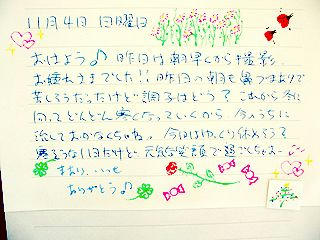 11月4日 日曜日
おはよう♪ 昨日は朝早くから撮影、
お疲れさまでした!! 昨日の朝も鼻づまりで
苦しそうだったけど調子はどう? これから冬に
向ってどんどん寒くなっていくから今のうちに
治しておかなくちゃね。今日はゆっくり休めそう?
寒そうな1日だけど元気な笑顔で過ごしちゃお〜
いつも
ありがとう♪